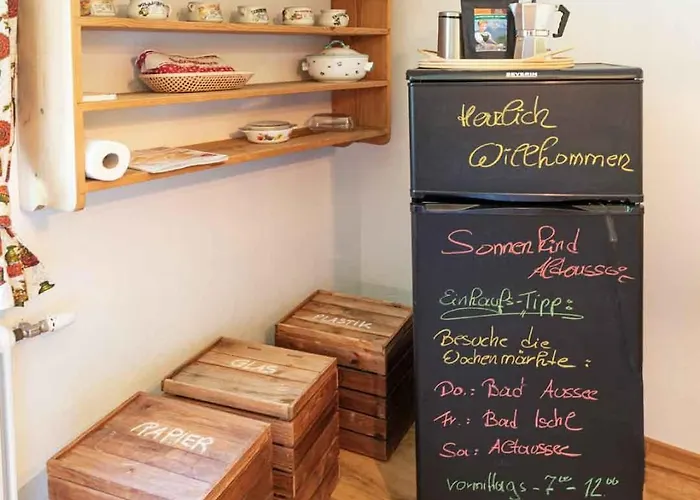 SEVERIN
Herzlich
Willkommen
Sonnenkind
Altaussee
Einkaufs-Tipp:
Besuche die
Wochenmärkte:
Do.: Bad Aussee
Fr.: Bad Ischl
Sa: Altaussee
vormittags - 7⁰⁰ - 12⁰⁰
PLASTIK
GLAS
PAPIER